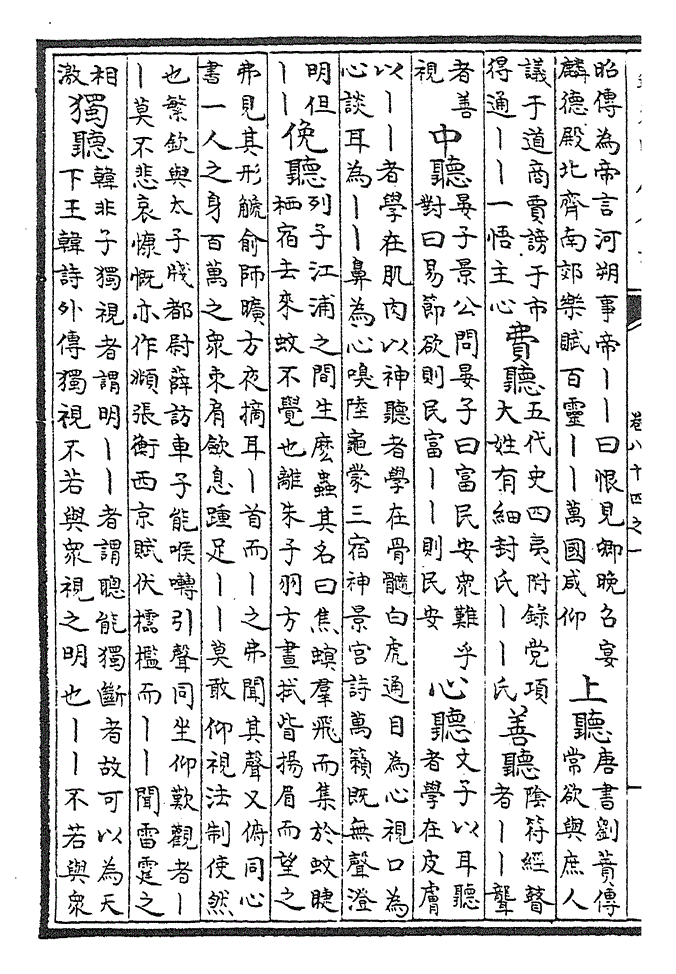 卷八十四之一
昭傳為帝言河朔事帝——曰恨見卿晚召宴
麟德殿北齊南郊樂賦百靈——萬國咸仰
上聽
唐書劉蕡傳
常欲與庶人
議于道商賈謗于市
得通——一悟主心
費聽
五代史四夷附錄党項
大姓有細封氏——氏
善聽
陰符經瞽
者——聾
者善
視
中聽
晏子景公問晏子曰富民安衆難乎
對曰易節欲則民富——則民安
心聽
文子以耳聽
者學在皮膚
以——者學在肌肉以神聽者學在骨髓白虎通目為心視口為
心談耳為——鼻為心嗅陸龜蒙三宿神景宮詩萬籟既無聲澄
明但
——
俛聽
列子江浦之間生麽蟲其名曰焦螟羣飛而集於蚊睫
栖宿去來蚊不覺也離朱子羽方晝拭眥揚眉而望之
弗見其形䚦俞師曠方夜擿耳—首而—之弗聞其聲又俯同心
書一人之身百萬之衆束肩歛息踵足——莫敢仰視法制使然
也繁欽與太子牋都尉薛訪車子能喉囀引聲同坐仰歎觀者—
—莫不悲哀慷慨亦作頫張衡西京賦伏櫺檻而——聞雷霆之
相
激
獨聽
韓非子獨視者謂明——者謂聰能獨斷者故可以為天
下王韓詩外傳獨視不若與衆視之明也——不若與衆